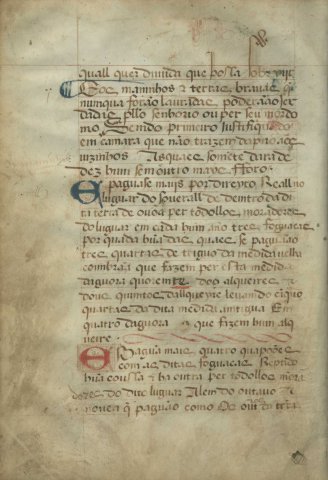 quall quer duuida que possa sobre vijr
Dos maninhos e terras brauas que
numqua forão lauradas poderão ser
dadas pello senhorio ou per seu mordo
mo Sendo primeiro Justificado
em camara que não trazem dapno aos
vizinhos As quaes somente dara de
dez hum sem outro mays fforo.
E paguase mais por direyto Reall no
luguar do soverall de demtro da di
ta terra de ovoa per todollos moradores
do luguar em cada hum año tres foguaças
por quada huũa das quaes se pagusão
tres quartas de triguo da medida velha
coimbrãa que fazem per esta medida
daguora quorenta dos alqueires e
dous quimtos dallqueire levando cinquo
quartas da dita medida amtigua Em
quatro daguora que fazem hum alq
ueire
E paguã mais quatro quapões
com as ditas foguaças
huũa cousa e ha outra per todollos mora
dores do dito luguar Allem do outauo
que paguão como os da terra